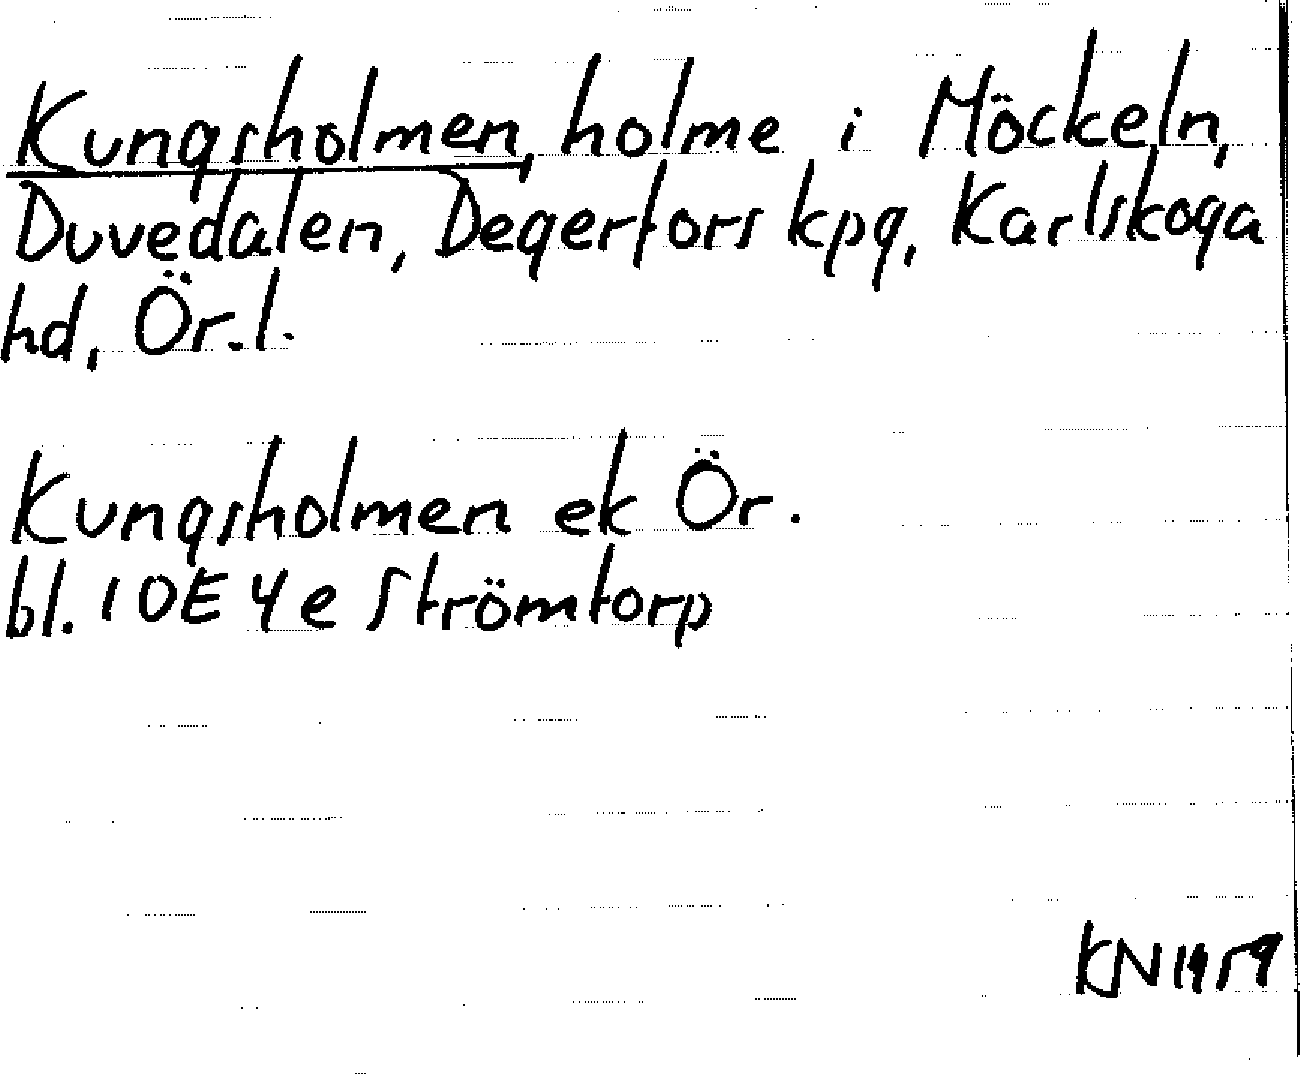 Kungsholmen, holme i Möckeln,
Duvedalen, Degerfors kpg, Karlskoga
hd, Ör.l.
Kungsholmen ek Ör.
bl. 10E 4e Strömtorp
KN 1959